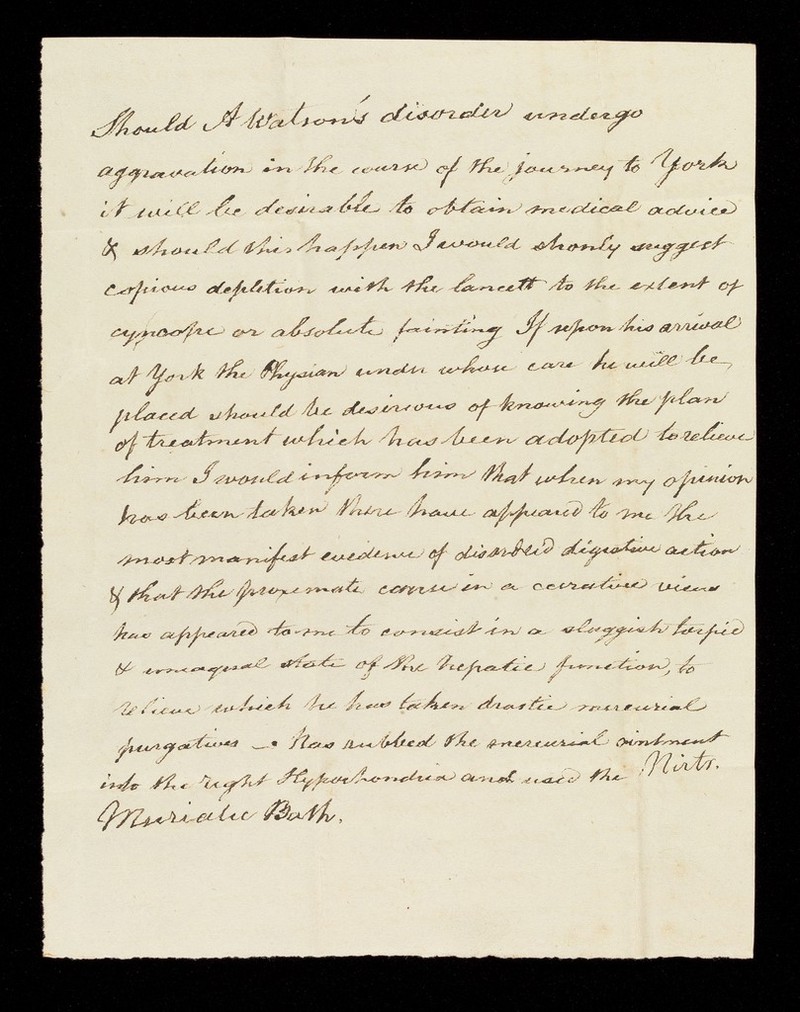 Should A Watson's disorder undergo
aggravation in the course of the journey to York
it will be desirable to obtain medical advice
& should this happen I would stronly suggest
copious depletion with the lancett to the extent of
cyncope or absolute fainting If upon his arrival
at York the Physian under whose care he will be
placed should be desirious of knowing the plan
of treatment which has been adopted to relieve
him I would inform him that when my opinion
has been taken there have appeared to me the
most manifest evidence of disordred digestive action
& that the proxemate cause in a curative view
has appeared to me to consist in a sluggish torpid
& unequal state of the hepatic function, to
relieve which he has taken drastic mercurial
purgatives — has rubbed the mercurial ointment
into the right Hypochondria and used the Nirto.
Muriatic Bath.